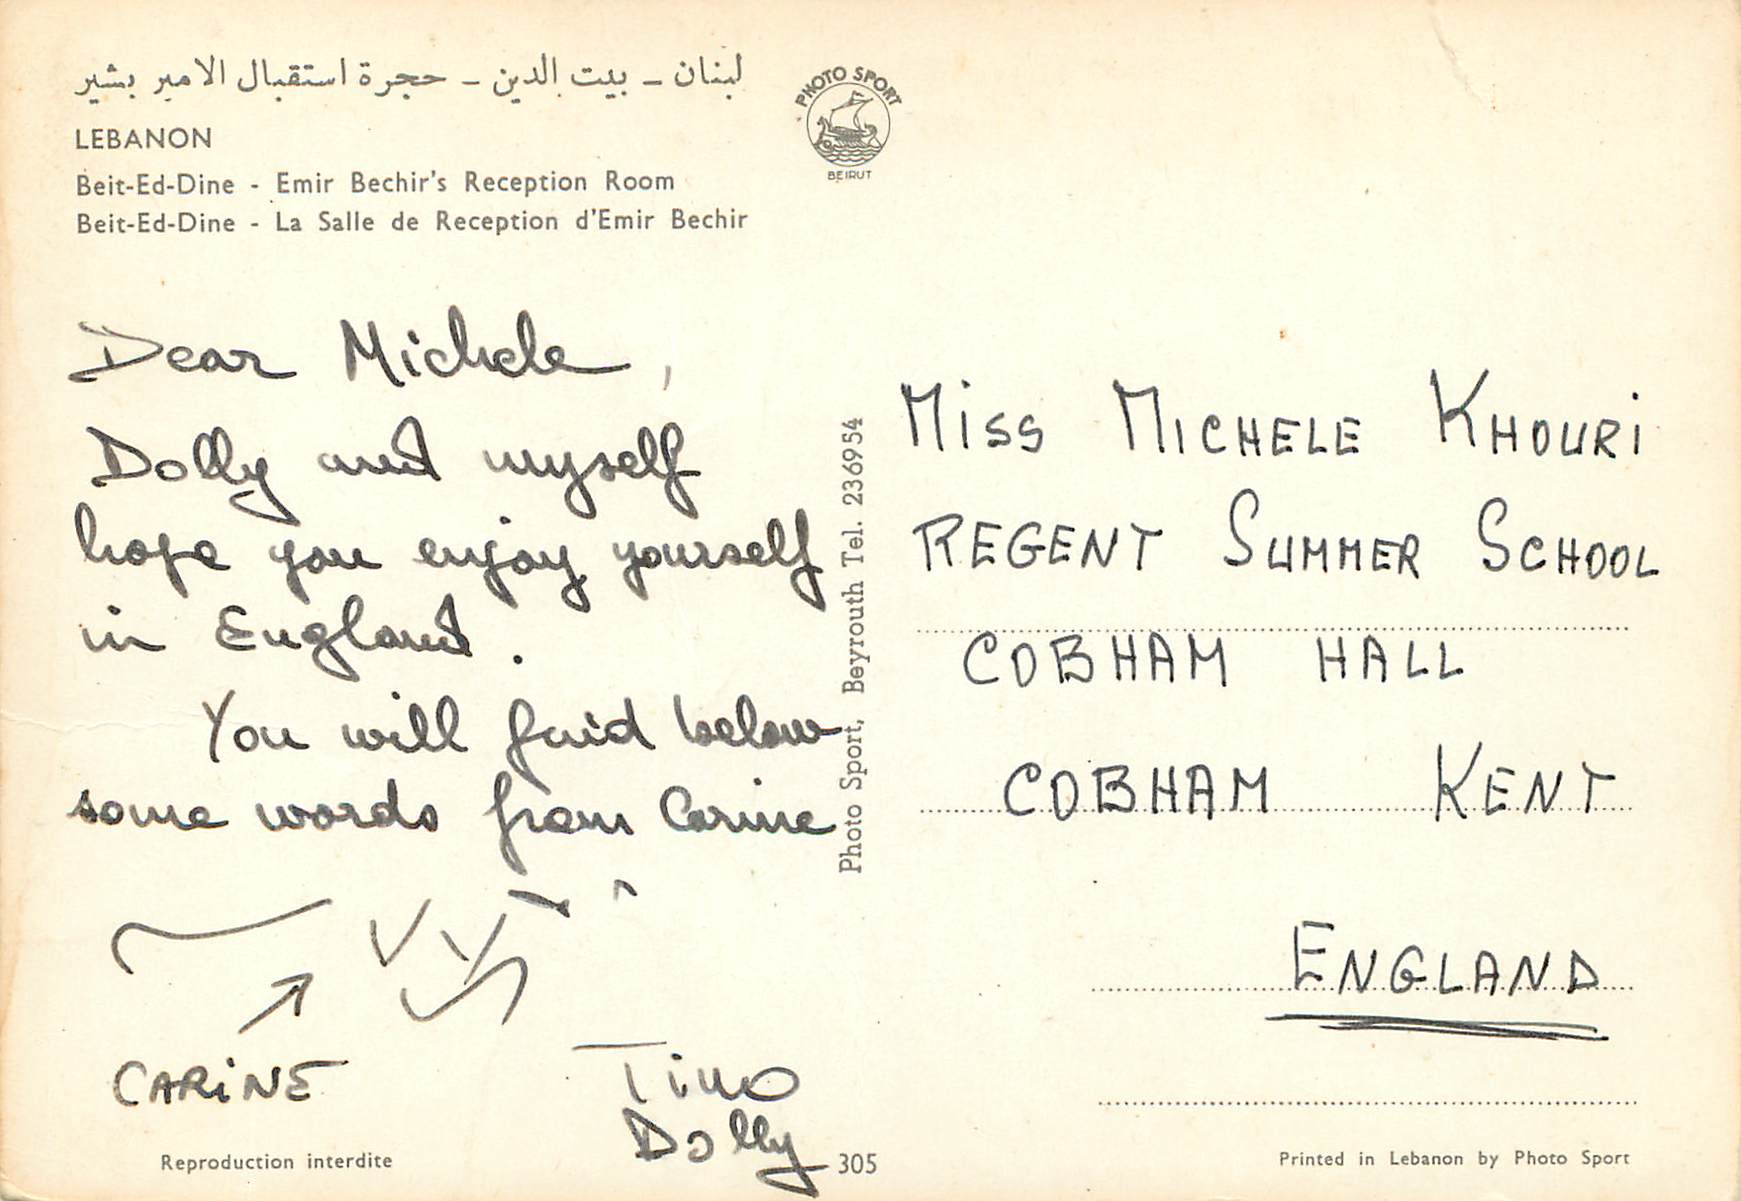 لبنان – بيت الدين – حجرة استقبال الامير بشير
LEBANON
Beit-Ed-Dine - Emir Bechir's Reception Room
Beit-Ed-Dine - La Salle de Reception d'Emir Bechir
PHOTO SPORT
BEIRUT
Dear Michele,
Dolly and myself
hope you enjoy yourself
in England.
You will find below
some words from Carine
CARINE
Tino
Dolly
Reproduction interdite
305
Photo Sport, Beyrouth Tel. 236954
MISS MICHELE KHOURI
REGENT SUMMER SCHOOL
COBHAM HALL
COBHAM KENT
ENGLAND
Printed in Lebanon by Photo Sport